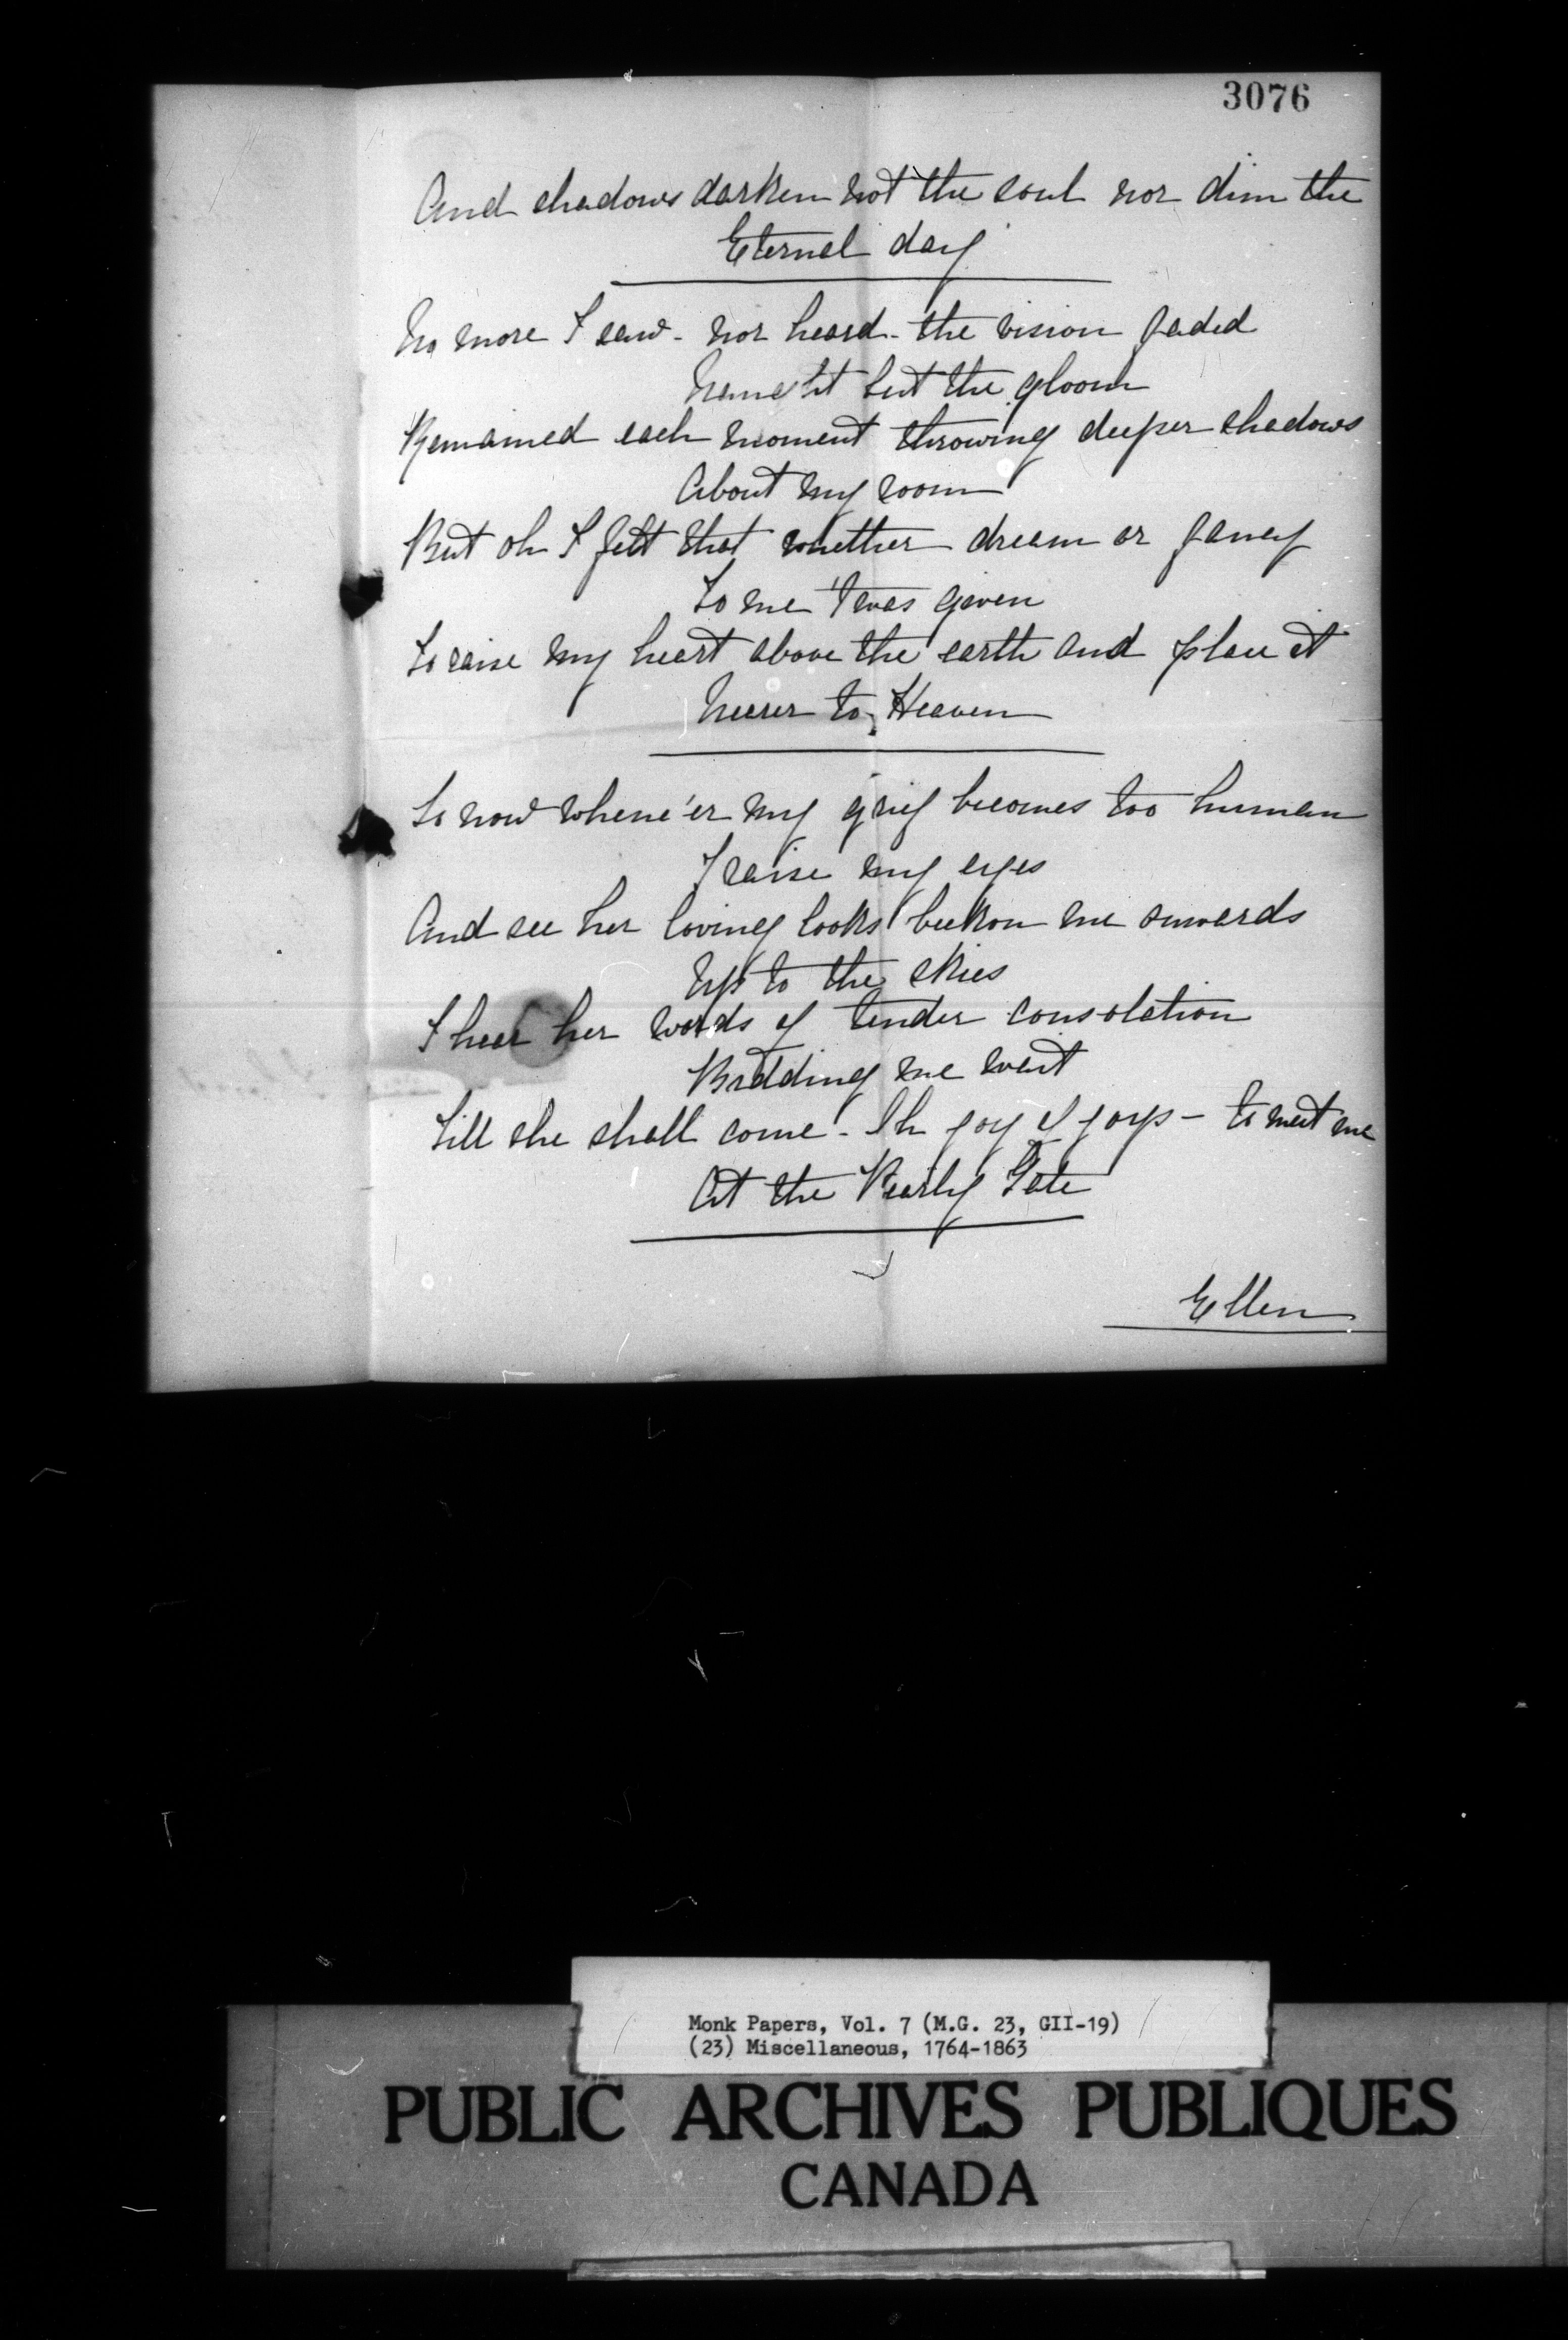 3076
And shadows darken not the soul nor dim the
Eternal day
No more I saw - nor heard - the vision faded
Naught but the gloom
Remained each moment throwing deeper shadows
About my room
But oh I felt that whether dream or fancy
To me 'twas given
To raise my heart above the earth and place it
Nearer to Heaven
So now whene'er my grief becomes too human
I raise my eyes
And see her loving looks beckon me onwards
Up to the skies
I hear her words of tender consolation
Bidding me wait
Till she shall come - Oh joy of joys - to meet me
At the Pearly Gate
Ellen
Monk Papers, Vol. 7 (M.G. 23, GII-19)
(23) Miscellaneous, 1764-1863
PUBLIC ARCHIVES PUBLIQUES
CANADA